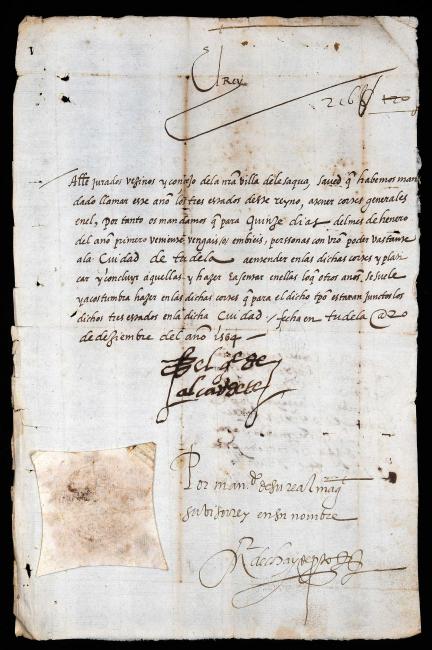 El Rey
Al[cal]de jurados vezinos y concejo dela nr̃a villa de lesaqua, saued q̃ habemos man
dado llamar esse año los tres estados desse reyno, a tener cortes generales
enel, Por tanto os mandamos q̃ para Quinze dias del mes de henero
del año primero veniente, vengays/o embieis, personas con vr̃o poder vastante
ala Ciudad de tudela a entender en las dichas cortes y plati
car y concluyr aquellas y hazer y assentar en ellas lo q̃ otros anos, se suele
y acostumbra hazer en las dichas cortes q̃ para el dicho tp̃o estaran juntos los
dichos tres estados en la dicha Ciudad / fecha en tudela a 20
de deziembre del año 1564
el q̃ de
alcaudete
Por man.do de su real mag.t
su visorrey en su nombre